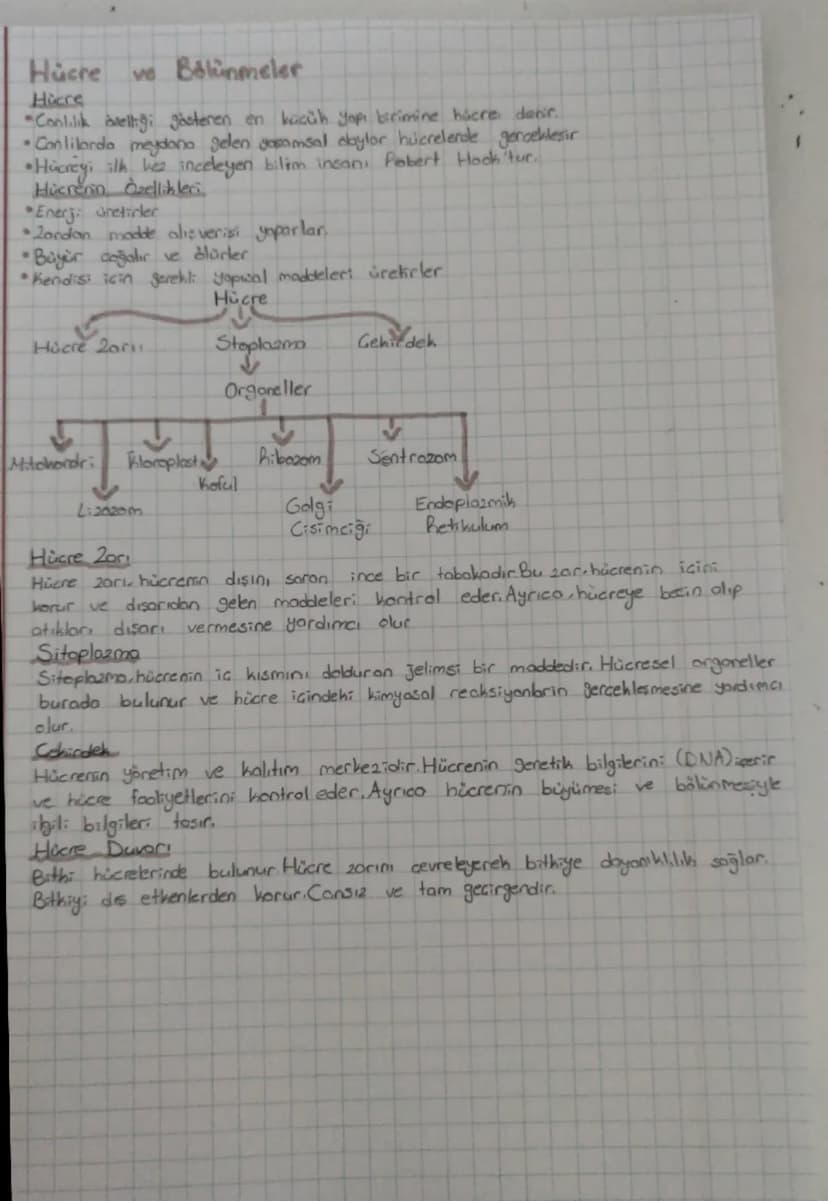 Hücre ve Bölünmeler
Hücre
•Canlılık özelliği gösteren en küçük yapı birimine hücre denir.
•Canlılarda meydana gelen yaşamsal olaylar hücrelerde gerçekleşir
•Hücreyi ilk kez inceleyen bilim insanı Robert Hook'tur.
Hücrenin Özellikleri
•Enerji üretirler
•Zardan madde alışverişi yaparlar.
•Büyür çoğalır ve ölürler
•Kendisi için gerekli yapısal maddeleri üretirler
Hücre
Hücre Zarı Stoplazma Çekirdek
Organeller
Mitokondri Kloroplast Ribozom Sentrozom
Koful
Lizozom Golgi Endoplazmik
Cisimciği Retikulum
Hücre Zarı
Hücre zarı, hücrenin dışını saran ince bir tabakadır.Bu zar, hücrenin içini
korur ve dışarıdan gelen maddeleri kontrol eder.Ayrıca, hücreye besin alıp
atıkları dışarı vermesine yardımcı olur
Sitoplazma
Sitoplazma, hücrenin iç kısmını dolduran jelimsi bir maddedir. Hücresel organeller
burada bulunur ve hücre içindeki kimyasal reaksiyonların gerçekleşmesine yardımcı
olur.
Çekirdek
Hücrenin yönetim ve kalıtım merkezidir.Hücrenin genetik bilgilerini (DNA) içerir
ve hücre faaliyetlerini kontrol eder.Ayrıca hücrenin büyümesi ve bölünmesiyle
ilgili bilgileri taşır.
Hücre Duvarı
Bitki hücrelerinde bulunur.Hücre zarını çevreleyerek bitkiye dayanıklılık sağlar.
Bitkiyi dış etkenlerden korur.Cansız ve tam geçirgendir.